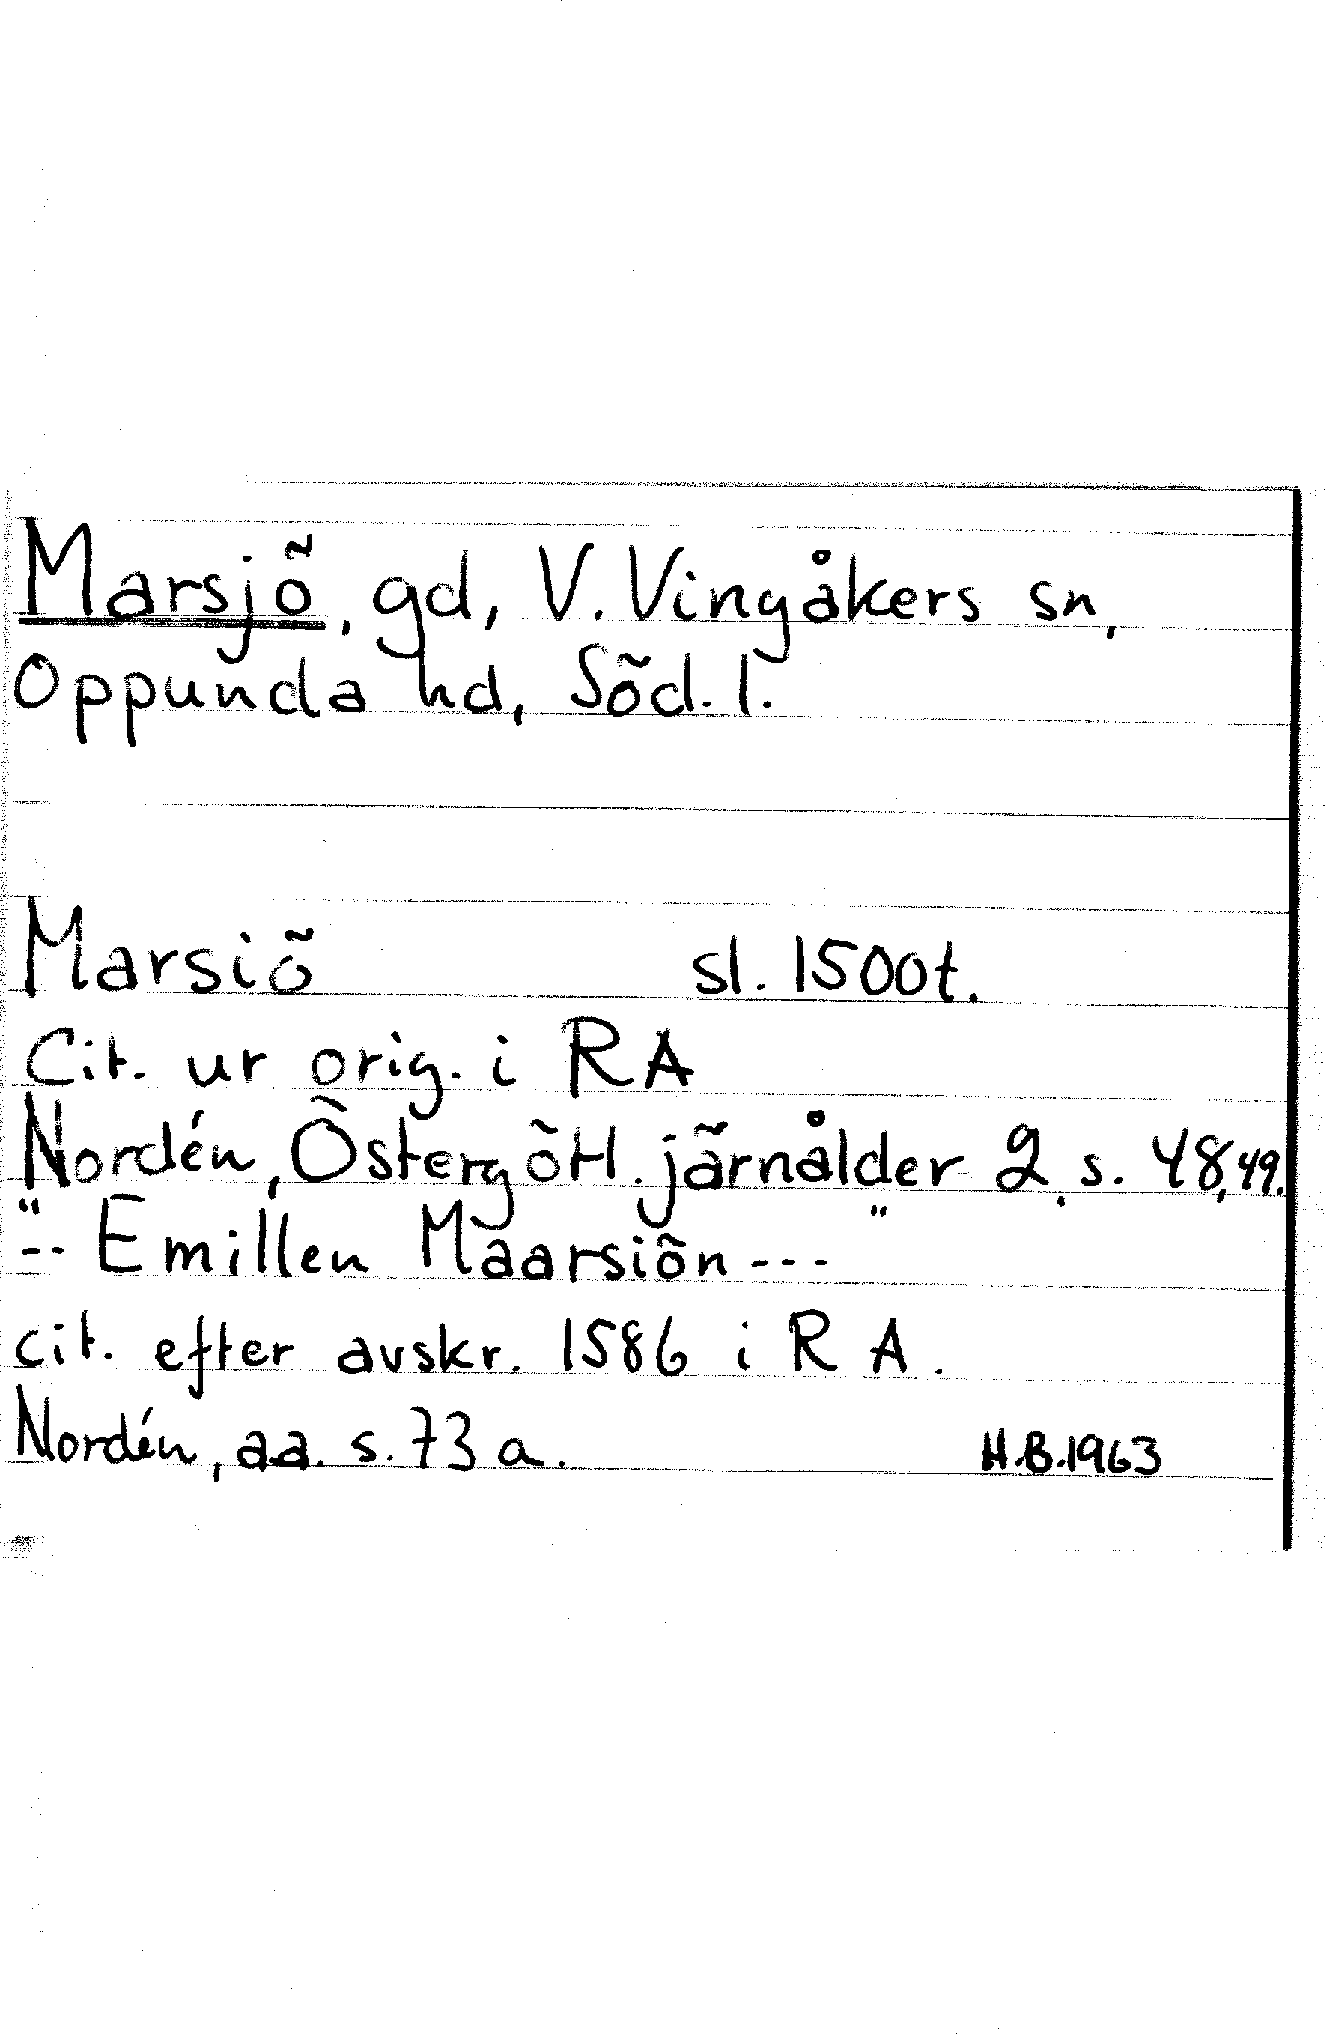 Marsjö, gd, V. Vingåkers sn,
Oppunda hd, Söd. l.
Marsiö sl. 1500t.
Cit. ur orig. i RA
Nordén, Östergötl. järnålder 2, s. 48, 49.
"-- Emillen Maarsiön ---"
cit. efter avskr. 1586 i RA.
Nordén, aa. s. 73 a. H.B. 1963